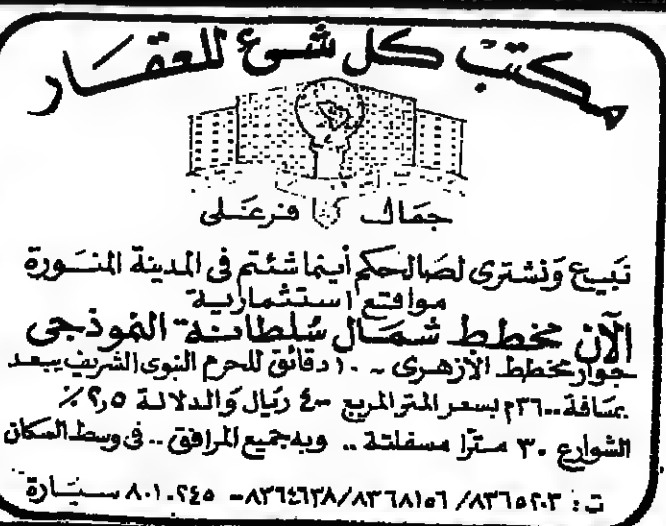 مكتب كل شيء للعقار
جمال فرغلى
نبيع ونشترى لصالحكم أينما شئتم فى المدينة المنورة
مواقع استثمارية
الآن مخطط شمال سلطانة النموذجى
جوار مخطط الأزهرى - ١٠ دقائق للحرم النبوى الشريف يبعد
بمسافة ٣٦٠٠م بسعر المتر المربع ٤٠٠ ريال والدلالة ٢٫٥٪
الشوارع ٣٠ مترا مسفلتة .. وبه جميع المرافق .. فى وسط السكان
ت : ٨٣٦٥٢٠٣ / ٨٣٦٨١٥٦ / ٨٣٦٤٦٣٨ - ٨٠١٠٢٤٥ سيارة